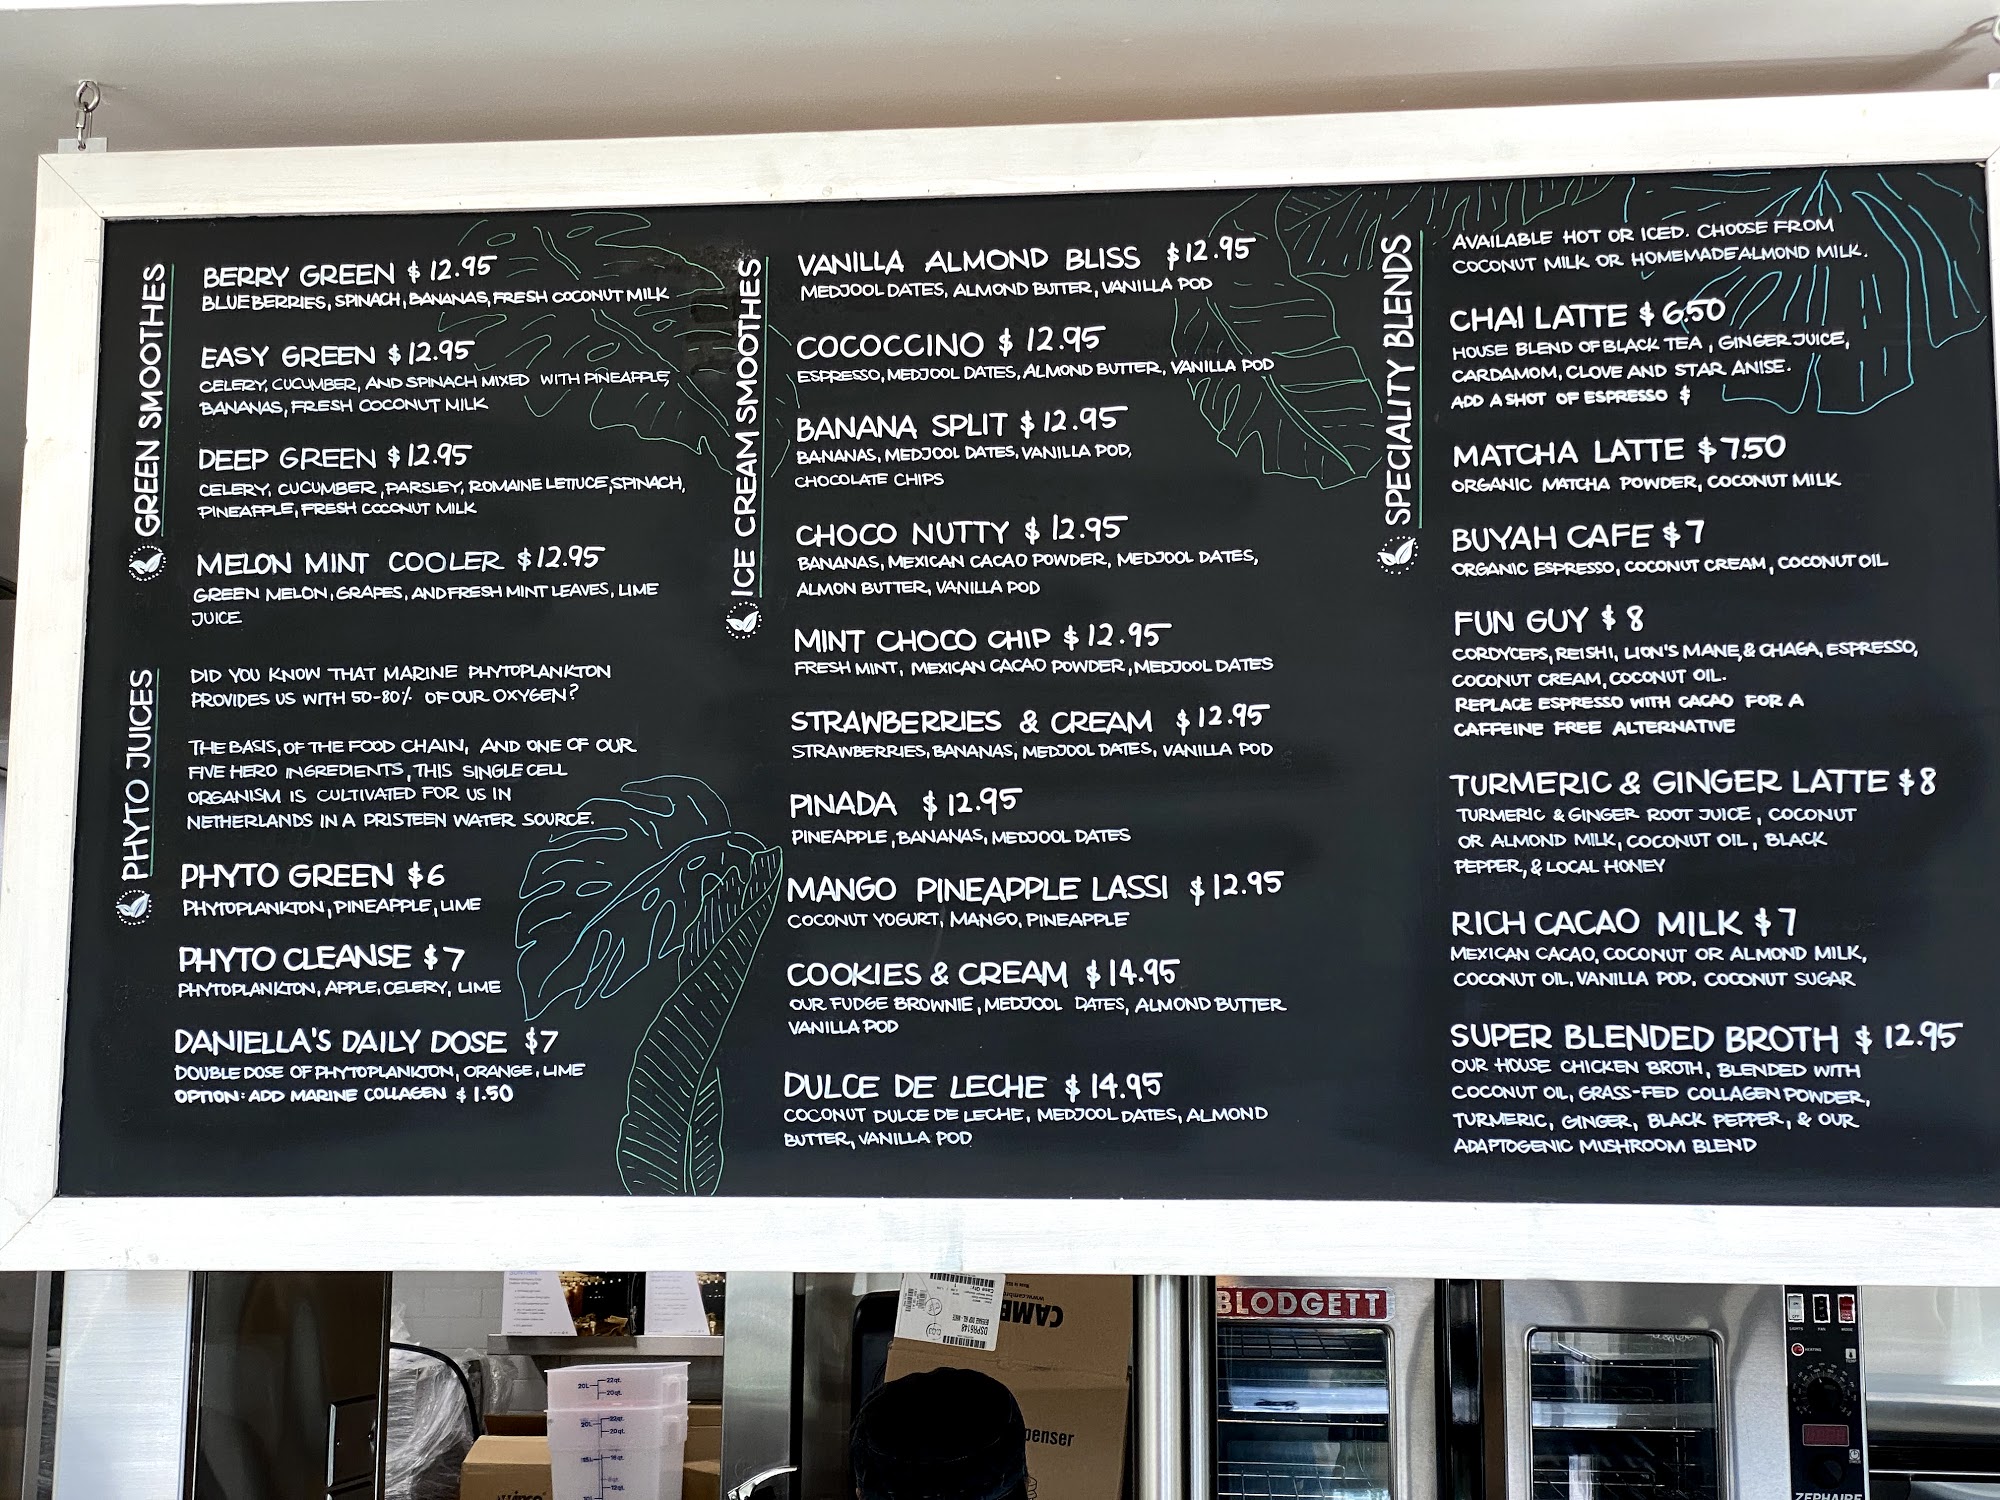 GREEN SMOOTHES
BERRY GREEN $12.95
BLUEBERRIES, SPINACH, BANANAS, FRESH COCONUT MILK
EASY GREEN $12.95
CELERY, CUCUMBER, AND SPINACH MIXED WITH PINEAPPLE,
BANANAS, FRESH COCONUT MILK
DEEP GREEN $12.95
CELERY, CUCUMBER, PARSLEY, ROMAINE LETTUCE, SPINACH,
PINEAPPLE, FRESH COCONUT MILK
MELON MINT COOLER $12.95
GREEN MELON, GRAPES, AND FRESH MINT LEAVES, LIME
JUICE
PHYTO JUICES
DID YOU KNOW THAT MARINE PHYTOPLANKTON
PROVIDES US WITH 50-80% OF OUR OXYGEN?
THE BASIS, OF THE FOOD CHAIN, AND ONE OF OUR
FIVE HERO INGREDIENTS, THIS SINGLE CELL
ORGANISM IS CULTIVATED FOR US IN
NETHERLANDS IN A PRISTEEN WATER SOURCE.
PHYTO GREEN $6
PHYTOPLANKTON, PINEAPPLE, LIME
PHYTO CLEANSE $7
PHYTOPLANKTON, APPLE, CELERY, LIME
DANIELLA'S DAILY DOSE $7
DOUBLE DOSE OF PHYTOPLANKTON, ORANGE, LIME
OPTION: ADD MARINE COLLAGEN $1.50
ICE CREAM SMOOTHES
VANILLA ALMOND BLISS $12.95
MEDJOOL DATES, ALMOND BUTTER, VANILLA POD
COCOCCINO $12.95
ESPRESSO, MEDJOOL DATES, ALMOND BUTTER, VANILLA POD
BANANA SPLIT $12.95
BANANAS, MEDJOOL DATES, VANILLA POD,
CHOCOLATE CHIPS
CHOCO NUTTY $12.95
BANANAS, MEXICAN CACAO POWDER, MEDJOOL DATES,
ALMON BUTTER, VANILLA POD
MINT CHOCO CHIP $12.95
FRESH MINT, MEXICAN CACAO POWDER, MEDJOOL DATES
STRAWBERRIES & CREAM $12.95
STRAWBERRIES, BANANAS, MEDJOOL DATES, VANILLA POD
PINADA $12.95
PINEAPPLE, BANANAS, MEDJOOL DATES
MANGO PINEAPPLE LASSI $12.95
COCONUT YOGURT, MANGO, PINEAPPLE
COOKIES & CREAM $14.95
OUR FUDGE BROWNIE, MEDJOOL DATES, ALMOND BUTTER
VANILLA POD
DULCE DE LECHE $14.95
COCONUT DULCE DE LECHE, MEDJOOL DATES, ALMOND
BUTTER, VANILLA POD
SPECIALITY BLENDS
AVAILABLE HOT OR ICED. CHOOSE FROM
COCONUT MILK OR HOMEMADE ALMOND MILK.
CHAI LATTE $6.50
HOUSE BLEND OF BLACK TEA, GINGER JUICE,
CARDAMOM, CLOVE AND STAR ANISE.
ADD A SHOT OF ESPRESSO $
MATCHA LATTE $7.50
ORGANIC MATCHA POWDER, COCONUT MILK
BUYAH CAFE $7
ORGANIC ESPRESSO, COCONUT CREAM, COCONUT OIL
FUN GUY $8
CORDYCEPS, REISHI, LION'S MANE, & CHAGA, ESPRESSO,
COCONUT CREAM, COCONUT OIL.
REPLACE ESPRESSO WITH CACAO FOR A
CAFFEINE FREE ALTERNATIVE
TURMERIC & GINGER LATTE $8
TURMERIC & GINGER ROOT JUICE, COCONUT
OR ALMOND MILK, COCONUT OIL, BLACK
PEPPER, & LOCAL HONEY
RICH CACAO MILK $7
MEXICAN CACAO, COCONUT OR ALMOND MILK,
COCONUT OIL, VANILLA POD, COCONUT SUGAR
SUPER BLENDED BROTH $12.95
OUR HOUSE CHICKEN BROTH, BLENDED WITH
COCONUT OIL, GRASS-FED COLLAGEN POWDER,
TURMERIC, GINGER, BLACK PEPPER, & OUR
ADAPTOGENIC MUSHROOM BLEND
BLODGETT
DSPR6148
www.camb
CAMB
penser
20L 22qt.
20qt.
20L 22qt.
20qt.
ZEPHAIRE